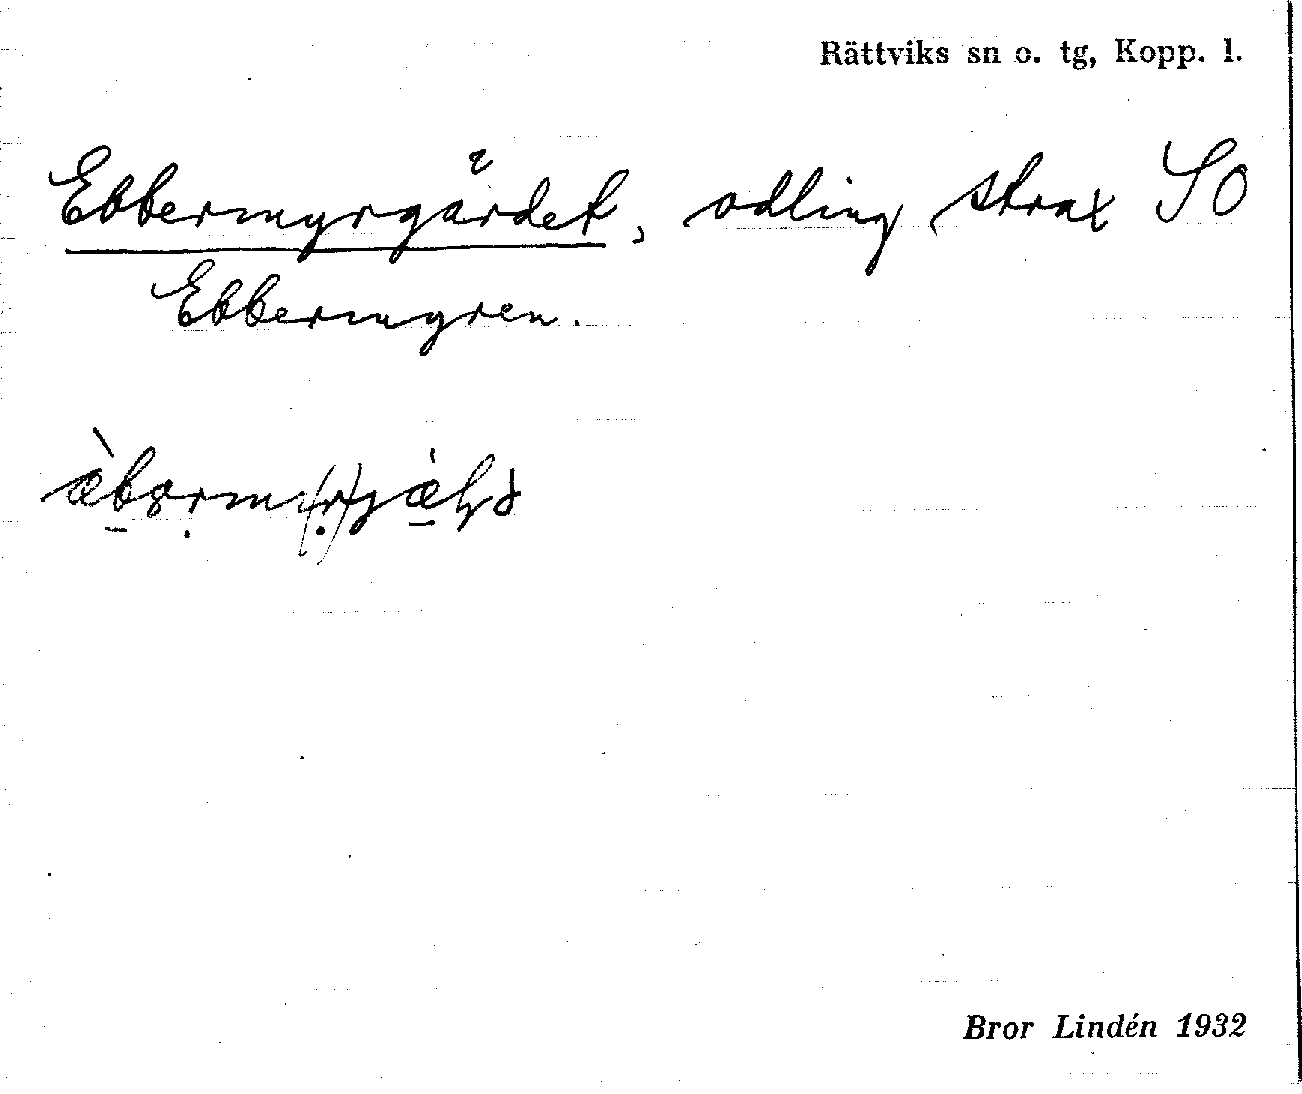 Rättviks sn o. tg, Kopp. l.
Ebbermyrgärdet, odling strax SO
Ebbermyren.
Bror Lindén 1932